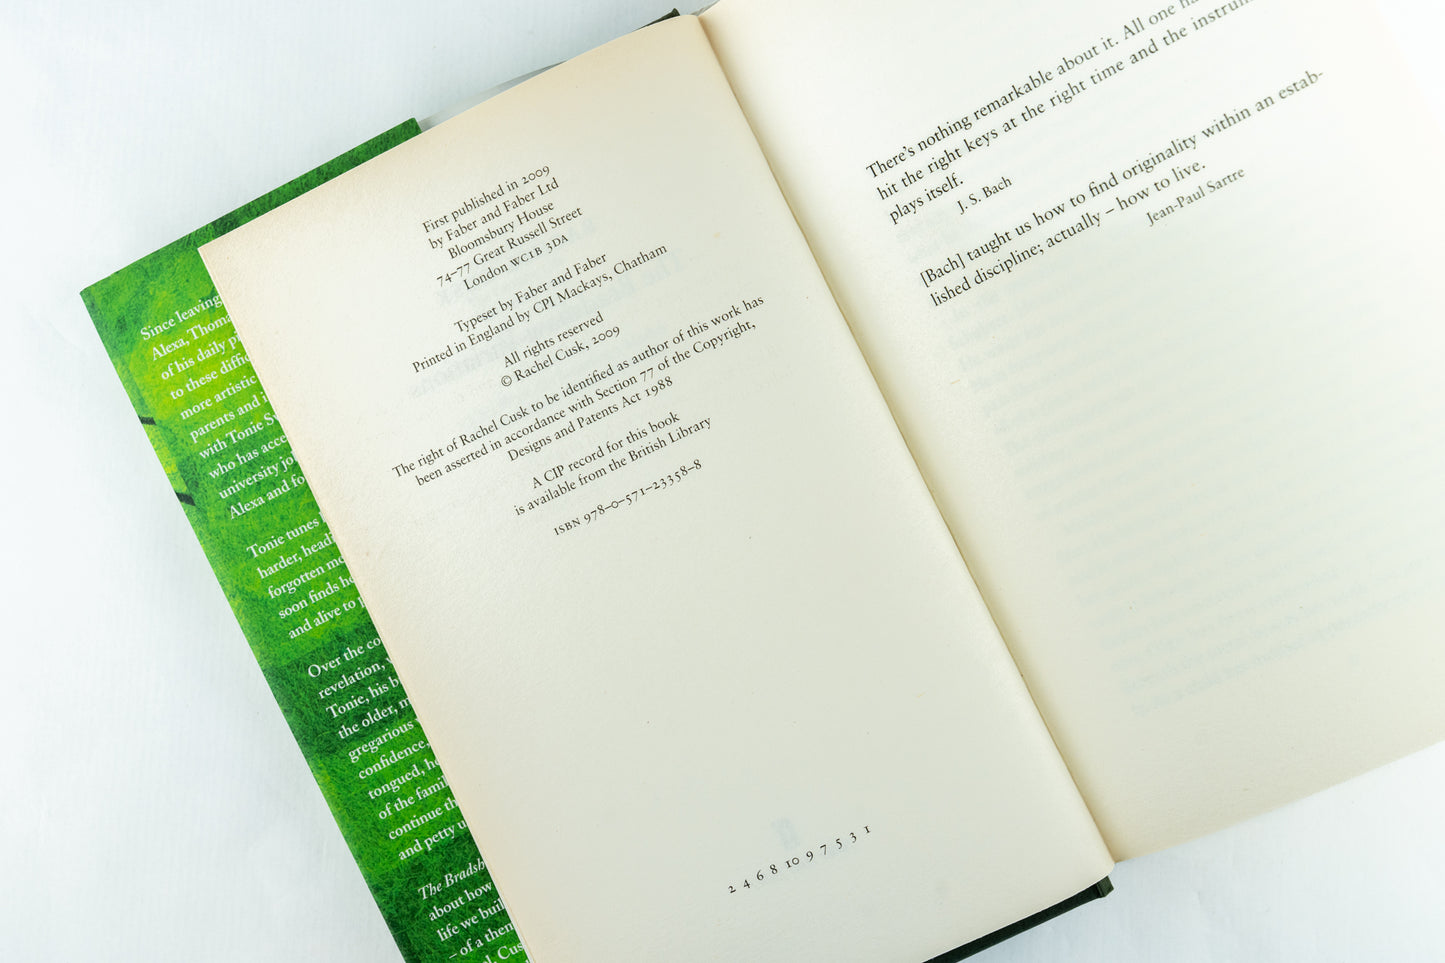 Since leaving
Alexa, Thoma
of his daily p
to these diffic
more artistic
parents and i
with Tonie Sw
who has acce
university jo
Alexa and fo
Tonie tunes
harder, headi
forgotten me
soon finds he
and alive to
Over the co
revelation,
Tonie, his b
the older, m
gregarious
confidence,
tongued, he
of the famil
continue th
and petty u
The Bradsh
about how
life we buil
– of a them
Cus
First published in 2009
by Faber and Faber Ltd
Bloomsbury House
74–77 Great Russell Street
London WC1B 3DA
Typeset by Faber and Faber
Printed in England by CPI Mackays, Chatham
All rights reserved
© Rachel Cusk, 2009
The right of Rachel Cusk to be identified as author of this work has
been asserted in accordance with Section 77 of the Copyright,
Designs and Patents Act 1988
A CIP record for this book
is available from the British Library
ISBN 978–0–571–23358–8
2 4 6 8 10 9 7 5 3 1
There's nothing remarkable about it. All one ha
hit the right keys at the right time and the instrum
plays itself.
J. S. Bach
[Bach] taught us how to find originality within an estab-
lished discipline; actually – how to live.
Jean-Paul Sartre